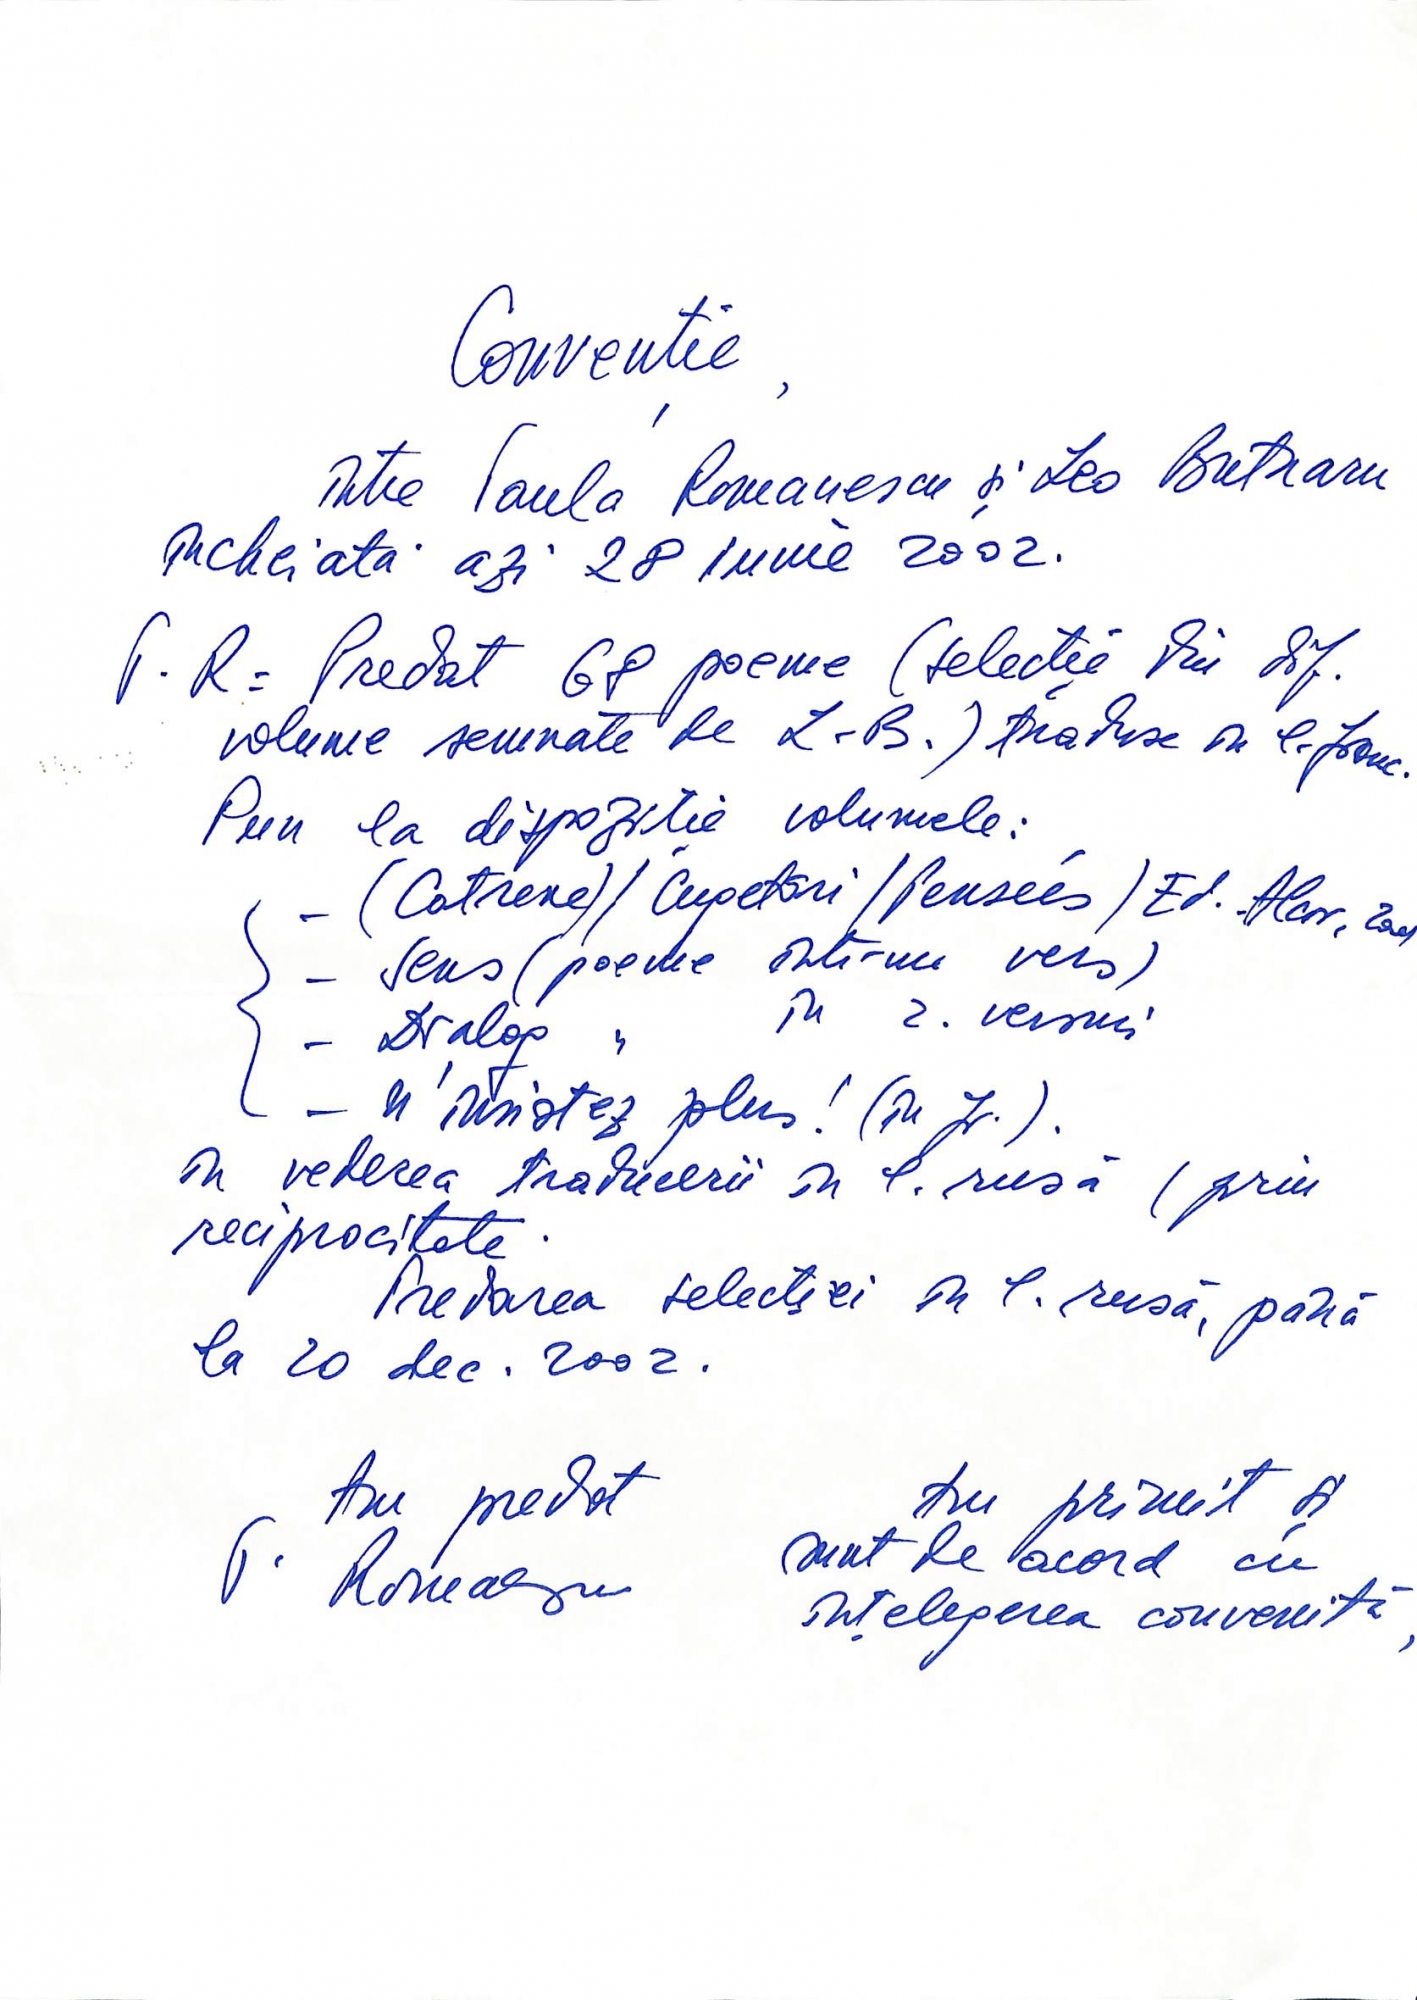 Convenție,
între Paula Romanescu și Leo Butnaru
încheiată azi 28 iunie 2002.
P. R = Predat 68 poeme (selecție din dif.
volume semnate de L.B.) traduse în l. franc.
Pun la dispoziție volumele:
- (Catrene) / Cugetări / Pensées) Ed. Alcor, 2001
- Sens (poeme într-un vers)
- Dialog " în 2. versuri
- N'insistez plus! (în fr.).
în vederea traducerii în l. rusă (prin
reciprocitate.
Predarea selecției în l. rusă, până
la 20 dec. 2002.
Am predat
P. Romanescu
Am primit și
sunt de acord cu
înțelegerea convenită,